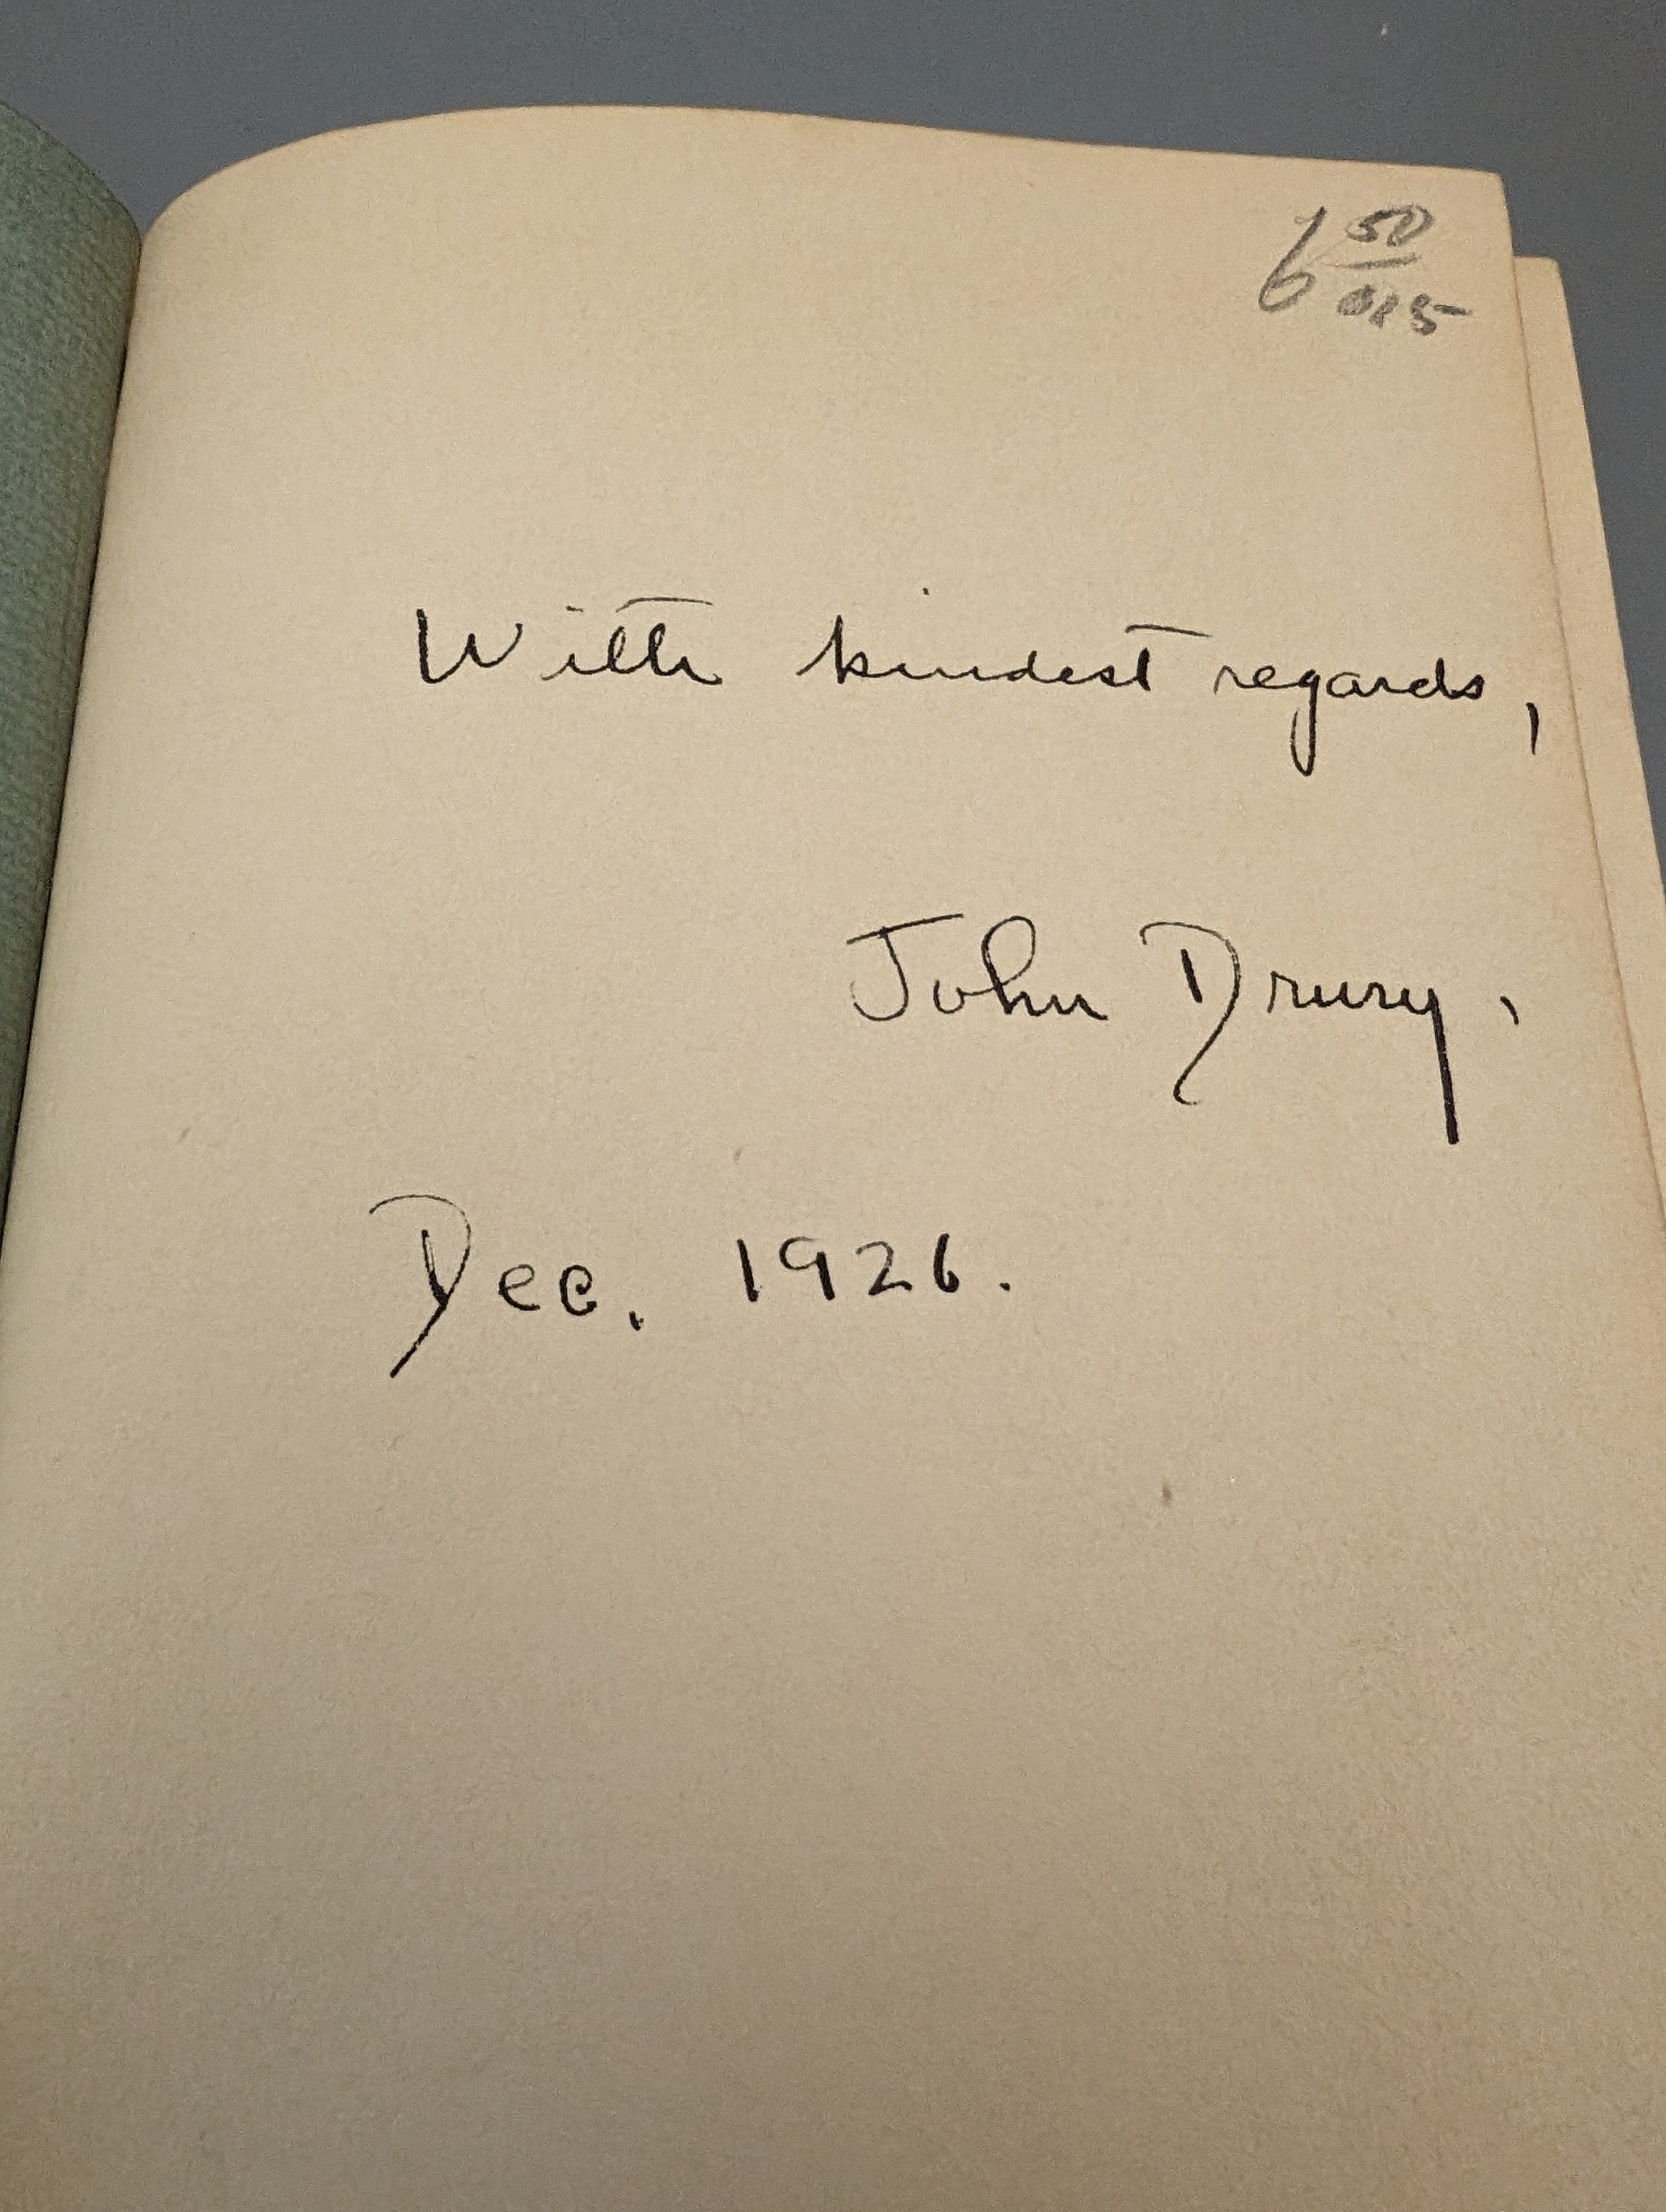 6 50
With kindest regards,
John Drury,
Dec. 1926.